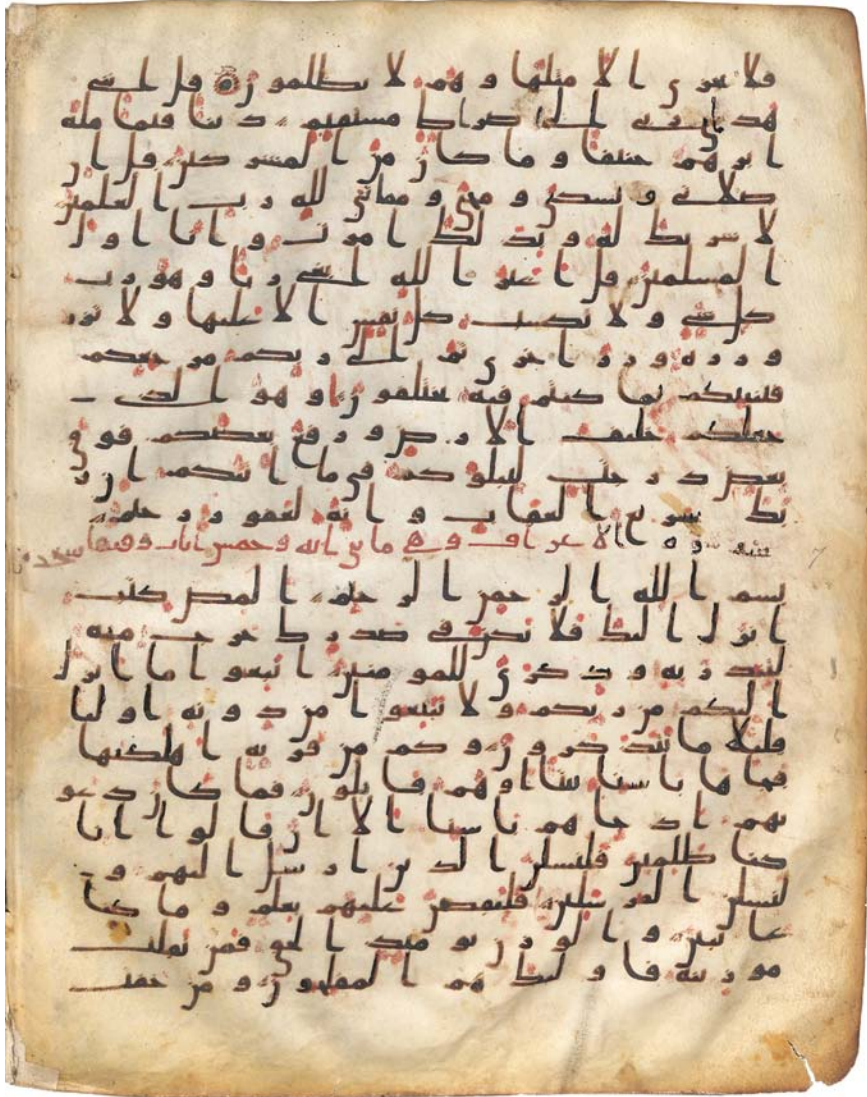 فلا يجزى الا مثلها و هم لا يظلمون قل انني
هديني ربي الى صراط مستقيم دينا قيما ملة
ابرهيم حنيفا و ما كان من المشركين قل ان
صلاتي و نسكي و محياي و مماتي لله رب العلمين
لا شريك له و بذلك امرت و انا اول
المسلمين قل اغير الله ابغي ربا و هو رب
كل شي و لا تكسب كل نفس الا عليها و لا تزر
وزرة وزر اخرى ثم الى ربكم مرجعكم
فينبئكم بما كنتم فيه تختلفون و هو الذي
جعلكم خليف الارض و رفع بعضكم فوق
بعض درجت ليبلوكم في ما اتيكم ان ر
بك سريع العقاب و انه لغفور رحيم
سورة الاعراف و هي مايتي اية و خمس ايات و فيها سجدة
بسم الله الرحمن الرحيم المص كتب
انزل اليك فلا يكن في صدرك حرج منه
لتنذر به و ذكرى للمومنين اتبعوا ما انزل
اليكم من ربكم و لا تتبعوا من دونه اوليا
قليلا ما تذكرون و كم من قرية اهلكنها
فجاها باسنا بيتا او هم قايلون فما كان دعو
يهم اذ جاهم باسنا الا ان قالوا انا
كنا ظلمين فلنسلن الذين ارسل اليهم و
لنسلن المرسلين فلنقصن عليهم بعلم و ما كنا
غايبين و الوزن يوميذ الحق فمن ثقلت
موزينه فاوليك هم المفلحون و من خفت